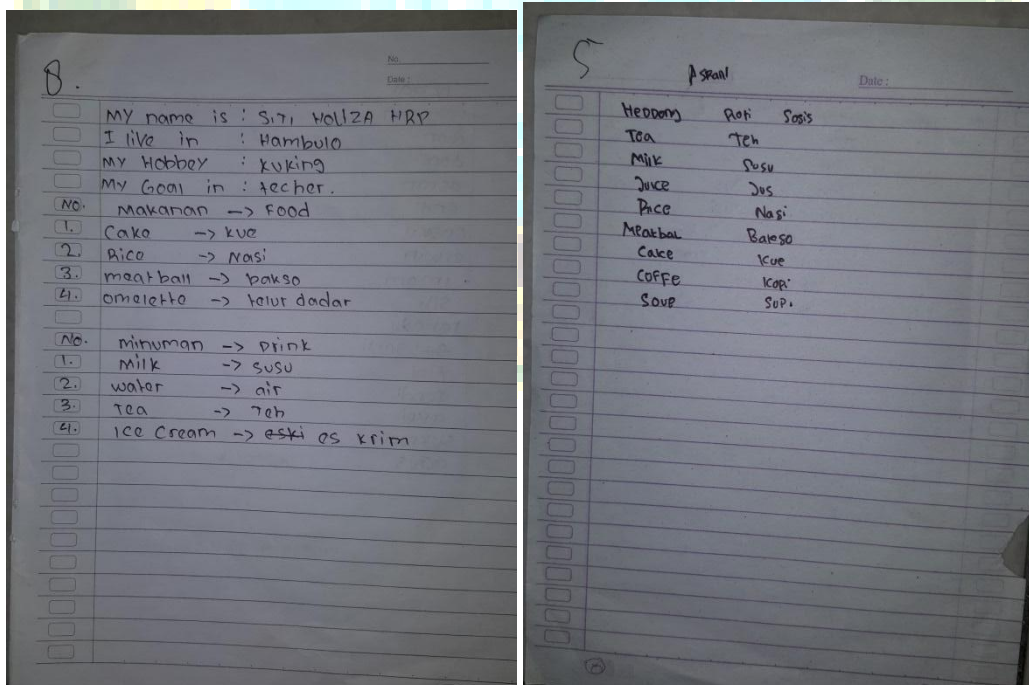 8.
No.
Date :
MY name is : SITI HOLIZA HRP
I live in : Hambulo
My Hobbey : kuking
My Goal in : techer.
No. Makanan -> Food
1. Cake -> kue
2. Rice -> Nasi
3. meatball -> bakso
4. omelette -> telur dadar
No. minuman -> Drink
1. milk -> susu
2. water -> air
3. Tea -> Teh
4. Ice Cream -> eski es krim
5
ASRANI
Date :
Roti Sosis
Tea Teh
Milk Susu
Juice Jus
Rice Nasi
Meatbal Bakso
Cake Kue
COFFe Kopi
Soup Sup.